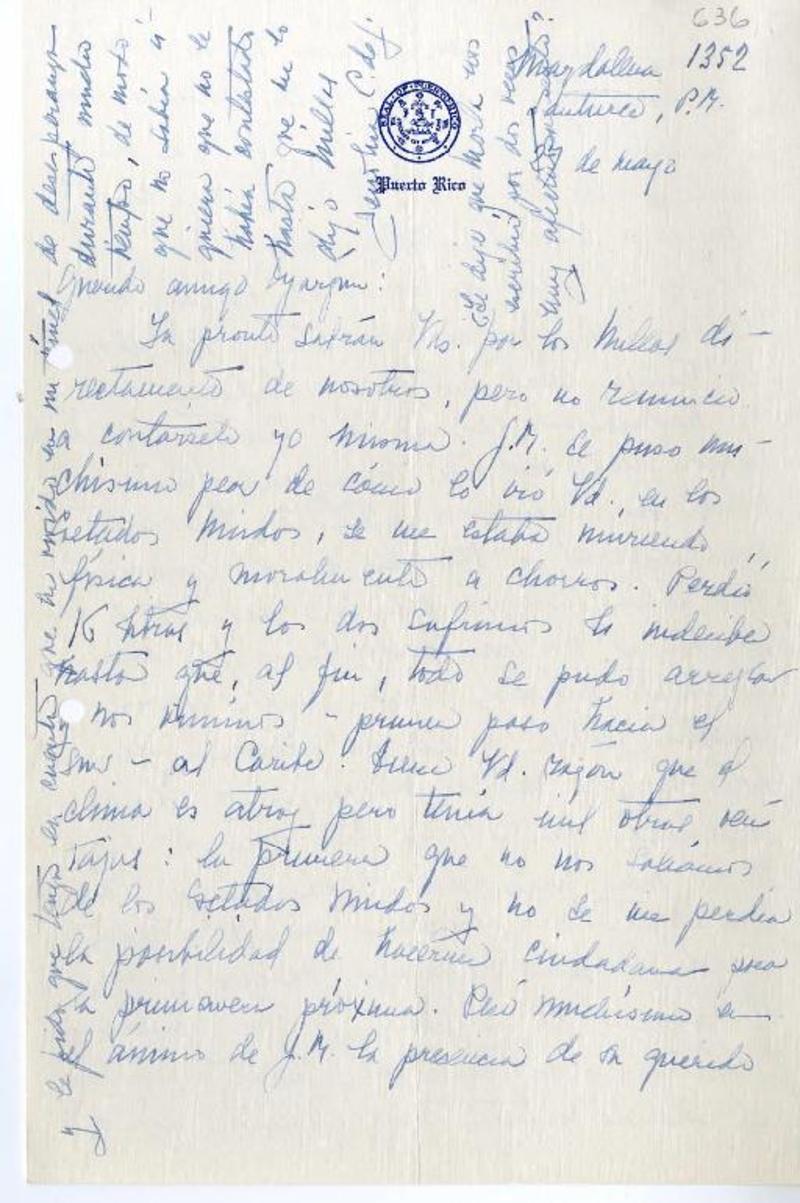 636
Magdalena 1352
Santurce, P.R.
de mayo
SEAL OF PUERTO RICO
Puerto Rico
Querido amigo Oyarzun:
Ya pronto sabrán Vds. por los Millas di-
rectamente de nosotros, pero no renuncio
a contárselo yo misma. J.R. se puso mu-
chísimo peor de cómo lo vió Vd., en los
Estados Unidos, se me estaba muriendo
física y moralmente a chorros. Perdió
16 libras y los dos sufrimos lo indecible
hasta que, al fin, todo se pudo arreglar
y nos vinimos - primer paso hacia el
Sur - al Caribe. Tiene Vd. razón que el
clima es atroz pero tenía mil otras ven
tajas: la primera que no nos salíamos
de los Estados Unidos y no se me perdía
la posibilidad de hacerme ciudadana para
la primavera próxima. Pesó muchísimo en
el ánimo de J.R. la presencia de su querido
y le pido que tenga en cuenta que he vivido en un túnel
de desesperanza
durante mucho
tiempo, de modo
que no sabía si-
quiera que no le
había contestado
hasta que me lo
dijo Millas
¿Le dijo que Mora nos
escribió por dos veces
muy afectuosamente?